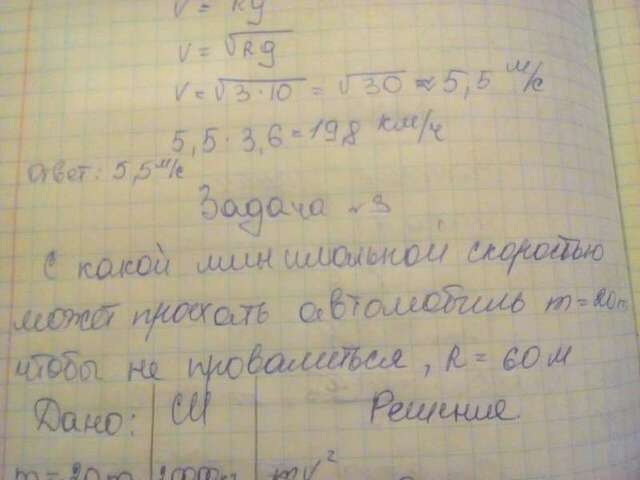 v² = Rg
v = √Rg
v = √3·10 = √30 ≈ 5,5 м/с
5,5 · 3,6 = 19,8 км/ч
Ответ: 5,5 м/с
Задача №3
С какой минимальной скоростью
может проехать автомобиль m = 20т
чтобы не провалиться, R = 60 м
Дано: СИ Решение
m = 20т 20000кг mv²